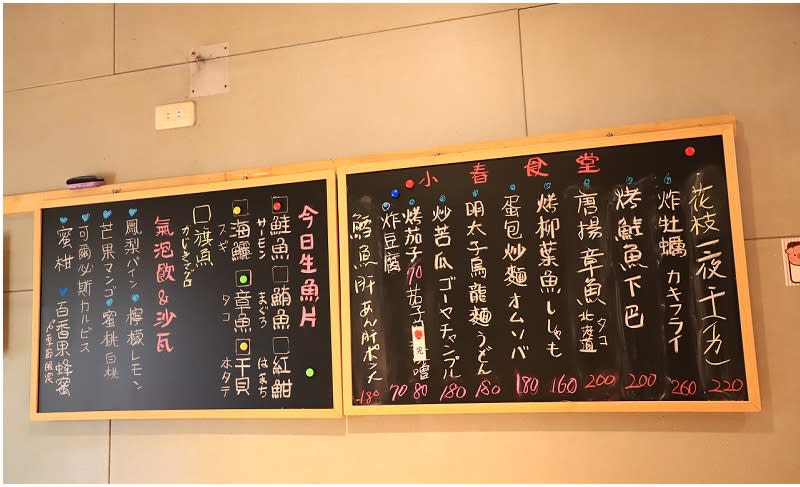 小春食堂
花枝一夜干(イカ) 220
炸牡蠣 カキフライ 260
烤鮭魚下巴 200
唐揚章魚 タコ 北海道 200
烤柳葉魚 ししゃも 160
蛋包炒麵 オムソバ 180
明太子烏龍麵 うどん 180
炒苦瓜 ゴーヤチャンプル 180
烤茄子 70 茄子 噌 80
完
炸豆腐 70
鱈魚肝 あん肝ポン大 180
今日生魚片
鮭魚 サーモン
鮪魚 まぐろ
紅魽 はまち
海鱺 スギ
章魚 タコ
干貝 ホタテ
旗魚 かじきマグロ
氣泡飲&沙瓦
鳳梨パイン
檸檬レモン
芒果マンゴ
蜜桃白桃
可爾必斯カルピス
蜜柑
百香果蜂蜜
季節限定